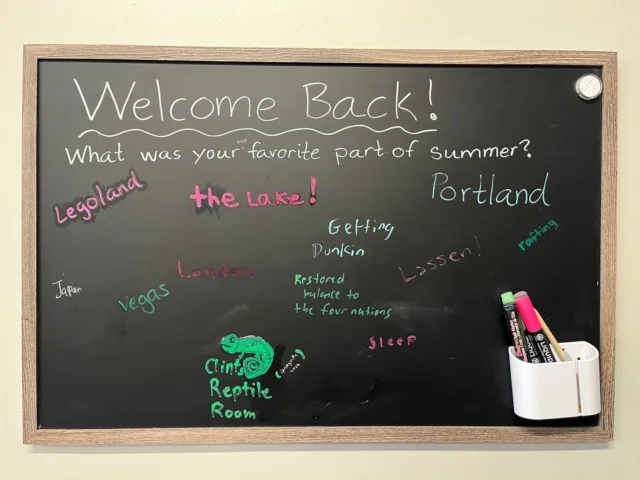 Welcome Back!
What was your favorite part of summer?
Legoland
the Lake!
Portland
Getting
Dunkin
rafting
Lassen!
London
Japan
Vegas
Restored
balance to
the four nations
Sleep
Clint's
Reptile
Room